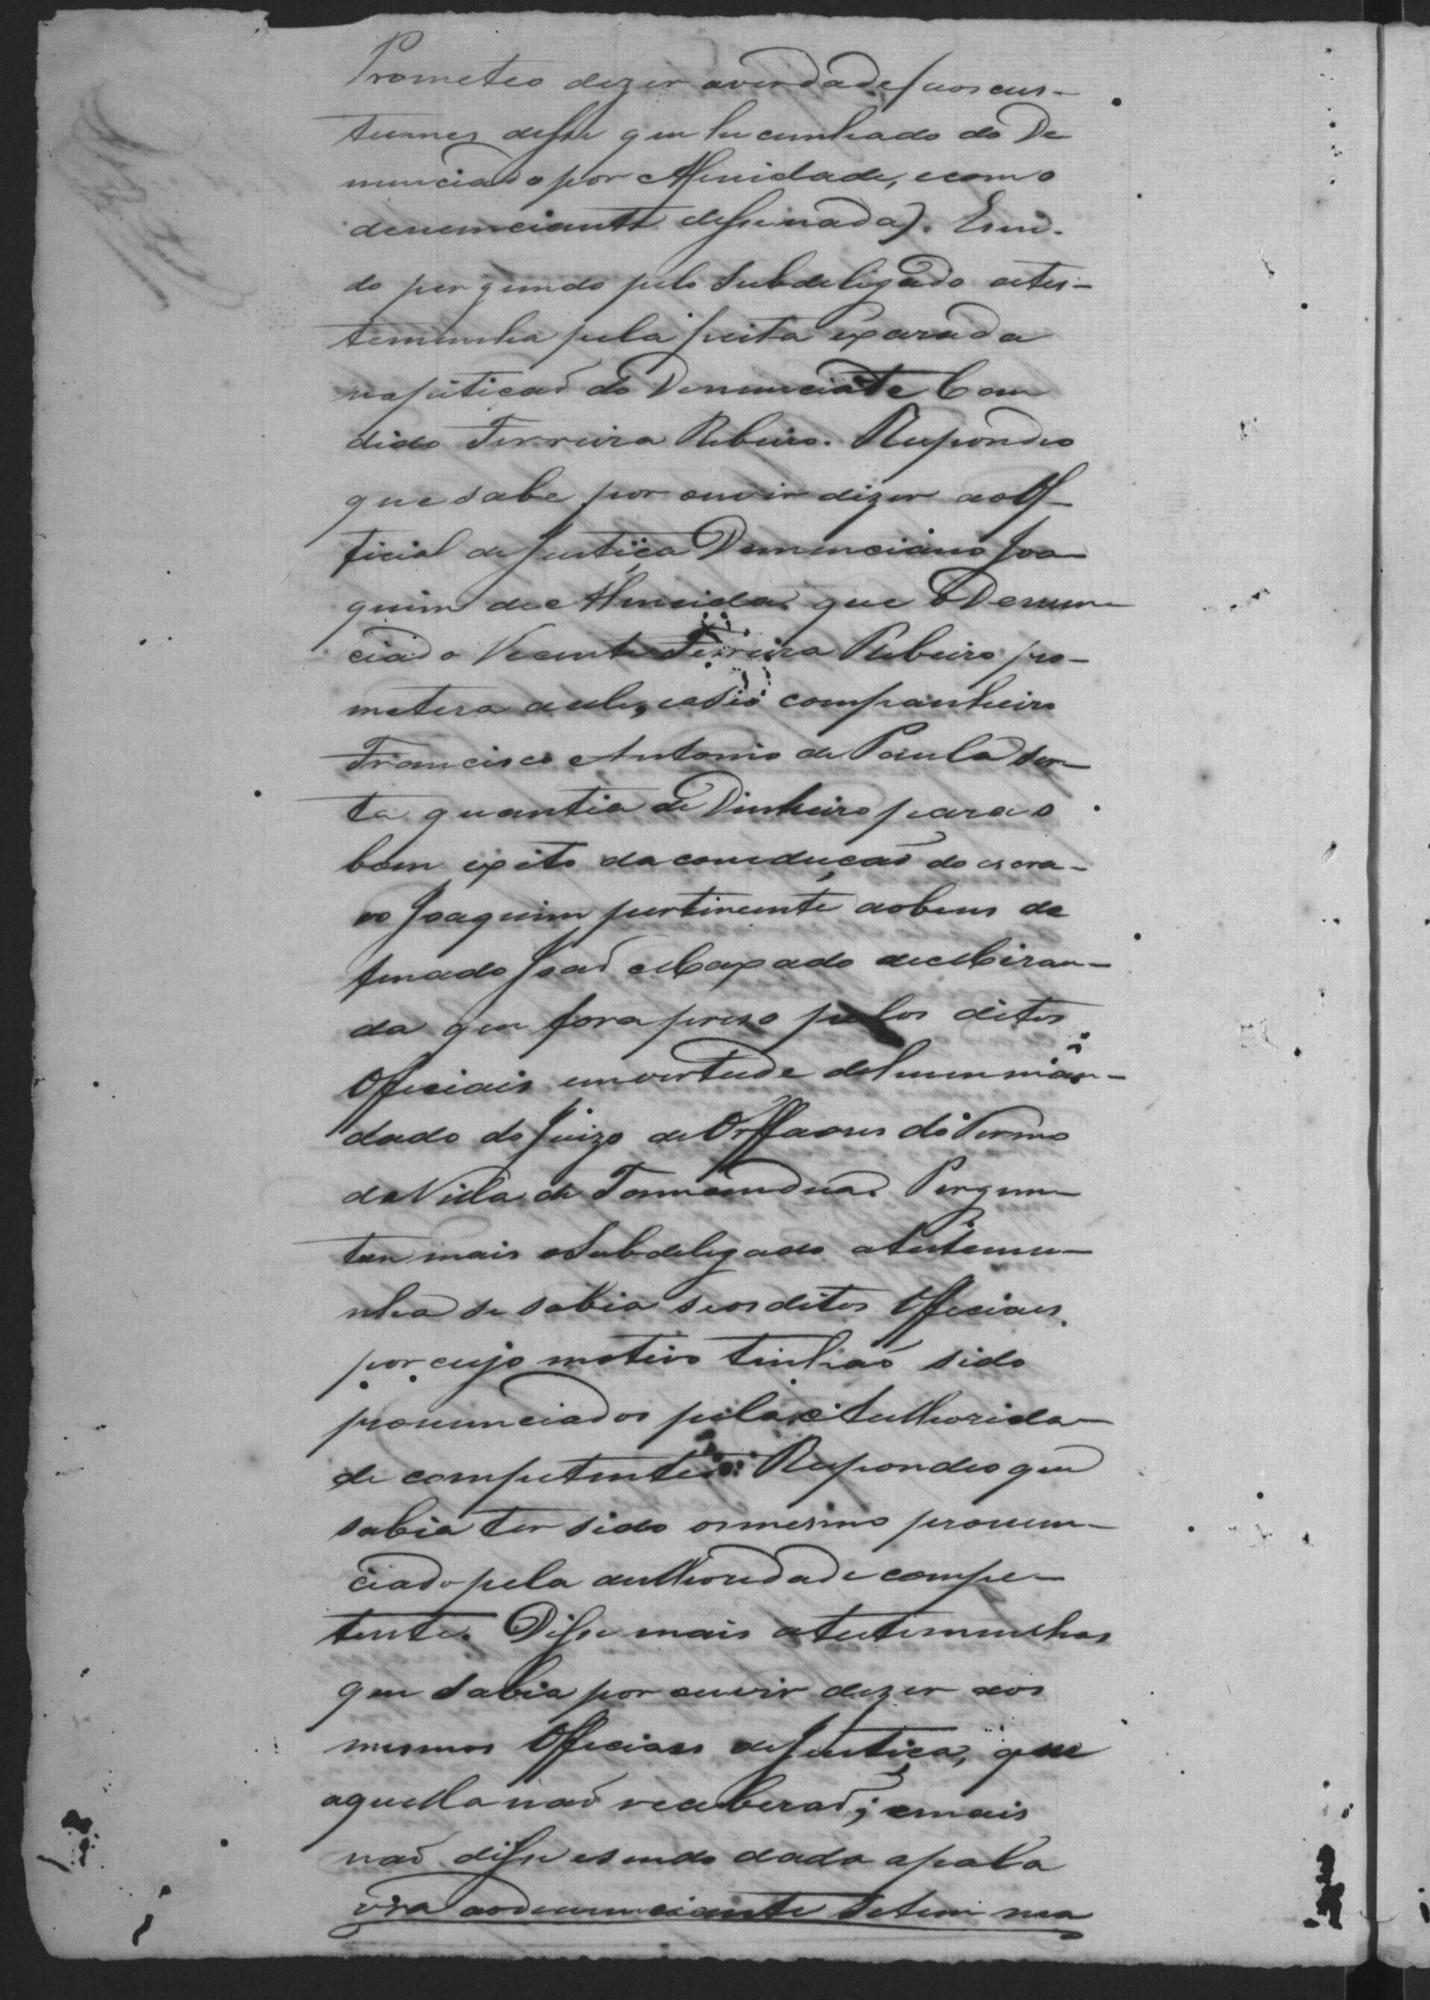 Prometeo dizer averdade (aos cus-
tumes disse que he cunhado do De
nunciado por Afinidade, ecomo
denunciante disse nada). Esen-
do perguindo pelo Subdeligado ates-
temunha pela queixa exarada
napiticaõ do Denunciate Can
dido Ferreira Ribeiro. Respondeo
que sabe por ouvir dizer aoOf-
ficial de Justiça Denunciano Joa
quim de Almeida que o Denun
ciado Vicente Ferreira Ribeiro pro-
metera aele, easeo companheiro
Francisco Antonio de Paula ser-
ta quantia de Dinheiro para o
bom exito da conduçaõ do escra-
vo Joaquim pertincente aobens do
finado Joaõ Maxado de Miran-
da que fora prezo pelos ditos
Officiais em vertude de hum man-
dado do Juizo de Orffaons do Termo
da Villa de Tamandua. Pergun-
tou mais oSubdelegado atestemu-
nha se sabia seos ditos Officiaes
por cujo motivo tinhaõ sido
pronunciados pela Authorida-
de competente. Respondeo que
sabia ter sido osmesmo pronun-
ciado pela authoridade compe-
tente. Disse mais atestemunhas
que sabia por ouvir dizer aos
mesmos Officiaes deJustiça, que
aquella naõ receberaõ; emais
naõ disse esendo dada apala
vra aodenunciante